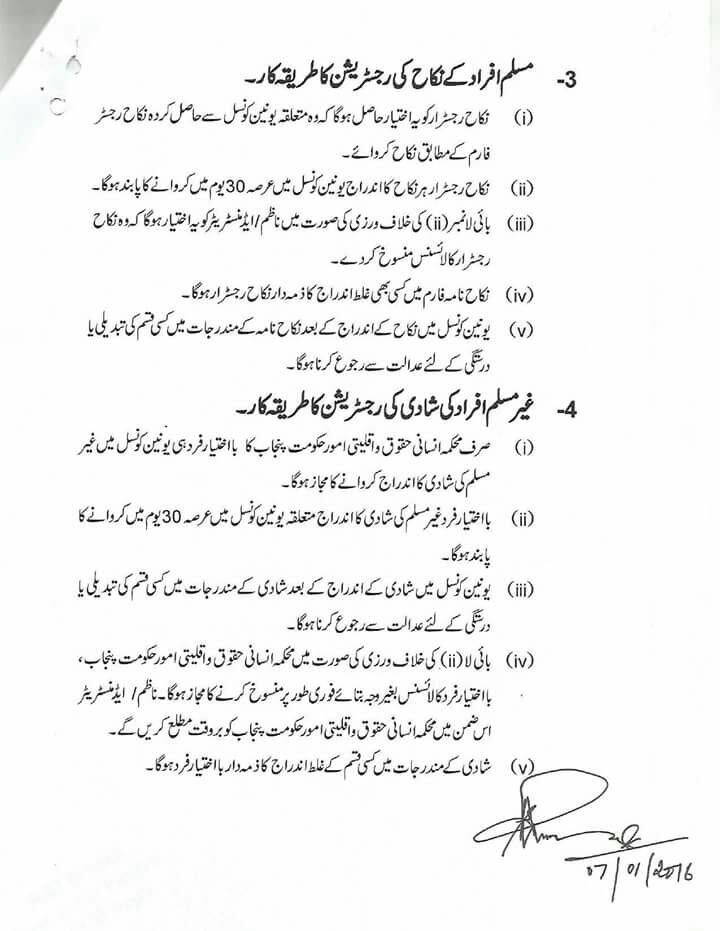 3- مسلم افراد کے نکاح کی رجسٹریشن کا طریقہ کار۔
(i) نکاح رجسٹرار کو یہ اختیار حاصل ہوگا کہ وہ متعلقہ یونین کونسل سے حاصل کردہ نکاح رجسٹر
فارم کے مطابق نکاح کروائے۔
(ii) نکاح رجسٹرار ہر نکاح کا اندراج یونین کونسل میں عرصہ 30 یوم میں کروانے کا پابند ہوگا۔
(iii) بائی لا نمبر (ii) کی خلاف ورزی کی صورت میں ناظم/ایڈمنسٹریٹر کو یہ اختیار ہوگا کہ وہ نکاح
رجسٹرار کا لائسنس منسوخ کر دے۔
(iv) نکاح نامہ فارم میں کسی بھی غلط اندراج کا ذمہ دار نکاح رجسٹرار ہوگا۔
(v) یونین کونسل میں نکاح کے اندراج کے بعد نکاح نامہ کے مندرجات میں کسی قسم کی تبدیلی یا
درستگی کے لئے عدالت سے رجوع کرنا ہوگا۔
4- غیر مسلم افراد کی شادی کی رجسٹریشن کا طریقہ کار۔
(i) صرف محکمہ انسانی حقوق و اقلیتی امور حکومت پنجاب کا بااختیار فرد ہی یونین کونسل میں غیر
مسلم کی شادی کا اندراج کروانے کا مجاز ہوگا۔
(ii) بااختیار فرد غیر مسلم کی شادی کا اندراج متعلقہ یونین کونسل میں عرصہ 30 یوم میں کروانے کا
پابند ہوگا۔
(iii) یونین کونسل میں شادی کے اندراج کے بعد شادی کے مندرجات میں کسی قسم کی تبدیلی یا
درستگی کے لئے عدالت سے رجوع کرنا ہوگا۔
(iv) بائی لا (ii) کی خلاف ورزی کی صورت میں محکمہ انسانی حقوق و اقلیتی امور حکومت پنجاب،
بااختیار فرد کا لائسنس بغیر وجہ بتائے فوری طور پر منسوخ کرنے کا مجاز ہوگا۔ ناظم/ ایڈمنسٹریٹر
اس ضمن میں محکمہ انسانی حقوق و اقلیتی امور حکومت پنجاب کو بروقت مطلع کریں گے۔
(v) شادی کے مندرجات میں کسی قسم کے غلط اندراج کا ذمہ دار بااختیار فرد ہوگا۔
07/01/2016